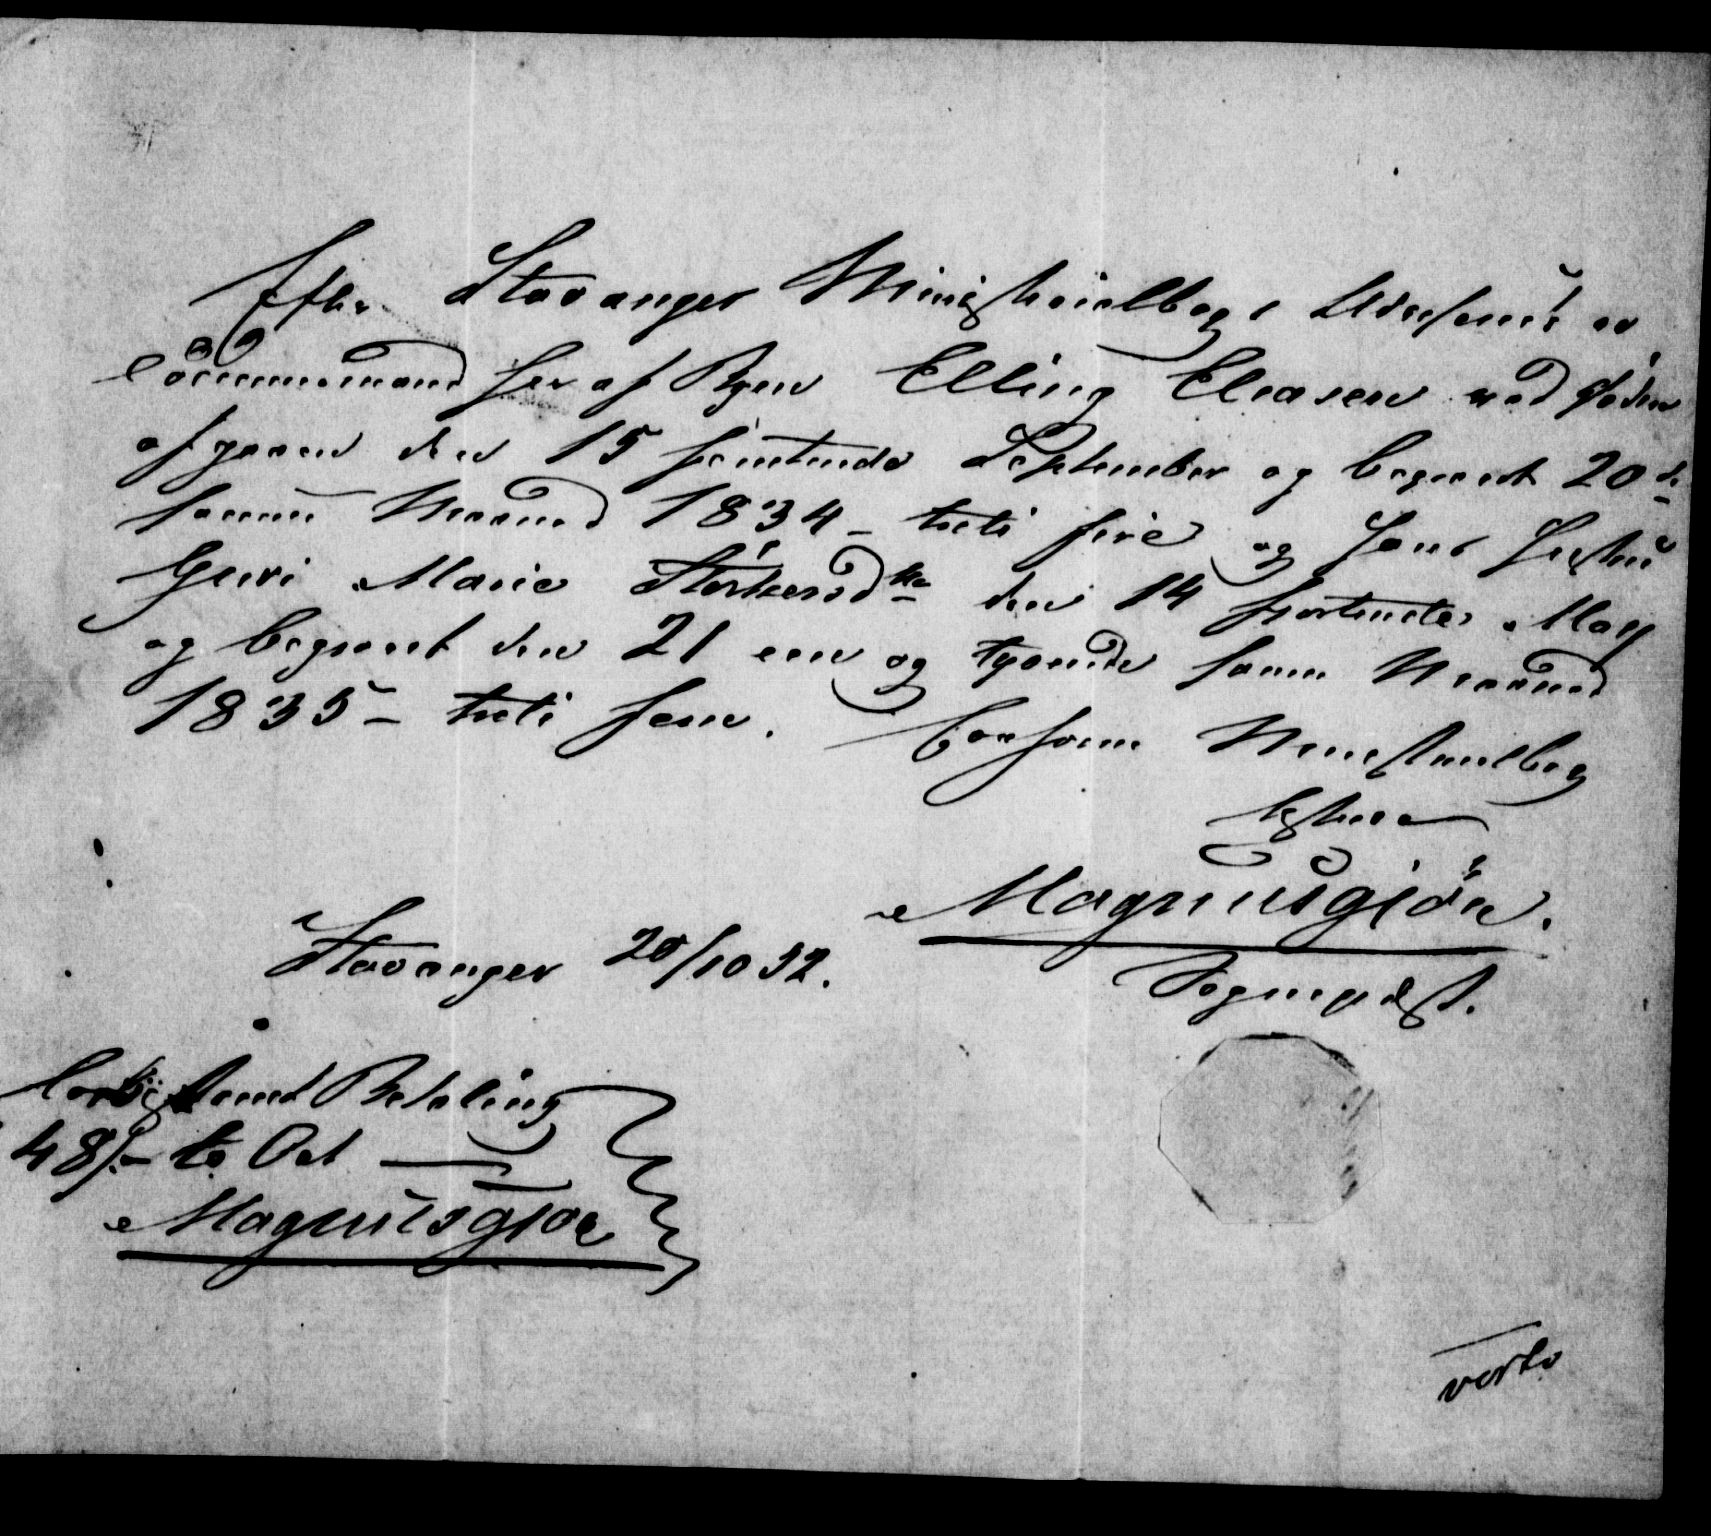 Efter Stavanger Ministerialbogs Udvisende er
Tømmermand her af Byen Elling Eliasen ved Døden
afgaaen den 15 femtende September og begravet 20de
samme Maaned 1834 – treti fire og hans Hustru
Guri Marie Størkersd. den 14 fjortende May
og begravet den 21 een og tyvende samme Maaned
1835 – treti fem.
Stavanger 20/10 52.
Magnus Gjøe.
Sognepræst.
Betaling
48 s. – to Ort
Magnus Gjøe
verte